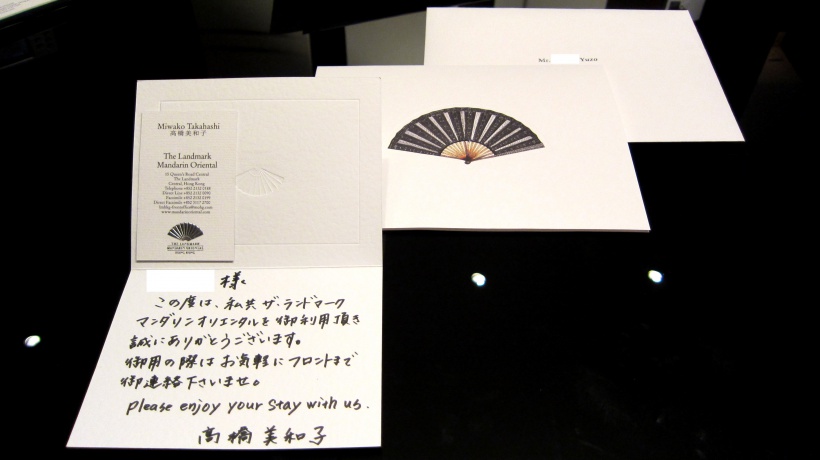 Miwako Takahashi
高橋美和子
The Landmark
Mandarin Oriental
15 Queen's Road Central
The Landmark
Central, Hong Kong
www.mandarinoriental.com
THE LANDMARK
MANDARIN ORIENTAL
HONG KONG
様
この度は、私共 ザ・ランドマーク
マンダリンオリエンタルを御利用頂き
誠にありがとうございます。
御用の際はお気軽にフロントまで
御連絡下さいませ。
please enjoy your stay with us.
高橋美和子